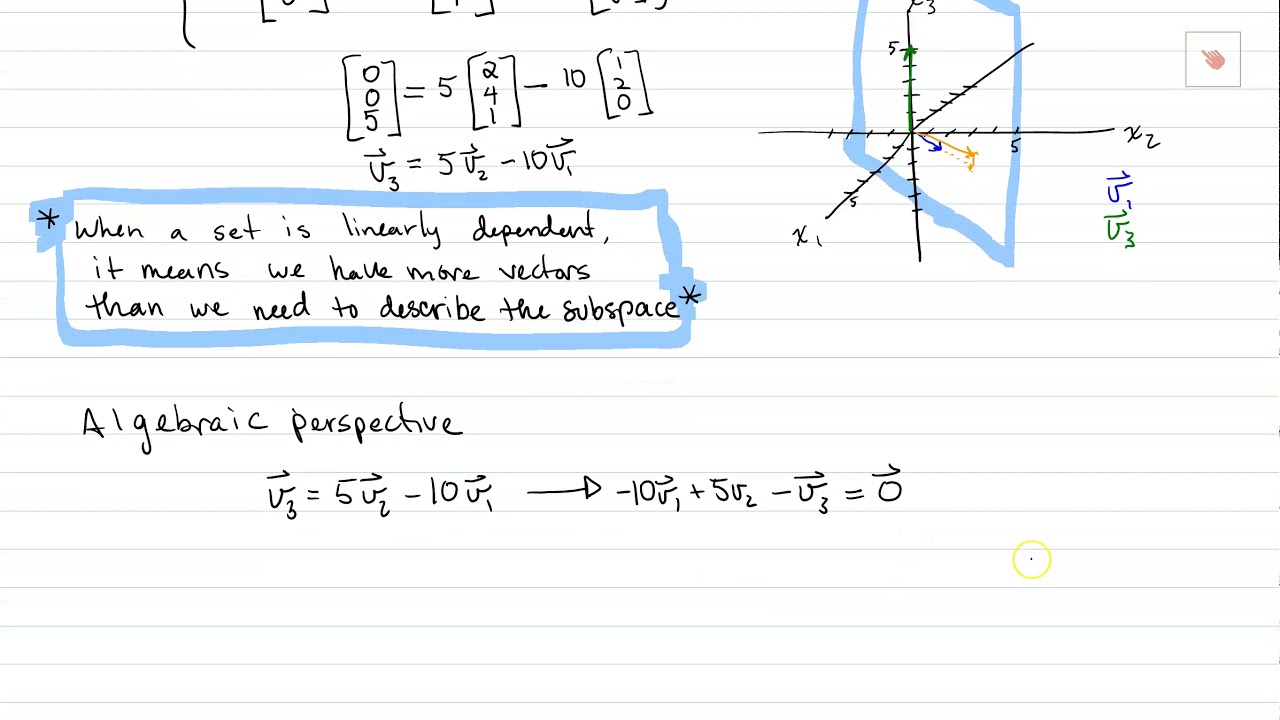 [0 0 5] = 5 [2 4 1] − 10 [1 2 0]
v⃗₃ = 5v⃗₂ − 10v⃗₁
* When a set is linearly dependent,
it means we have more vectors
than we need to describe the subspace *
5
x₂
5
5
x₁
v⃗₁
v⃗₃
Algebraic perspective
v⃗₃ = 5v⃗₂ − 10v⃗₁ → -10v⃗₁ + 5v₂ − v⃗₃ = 0⃗